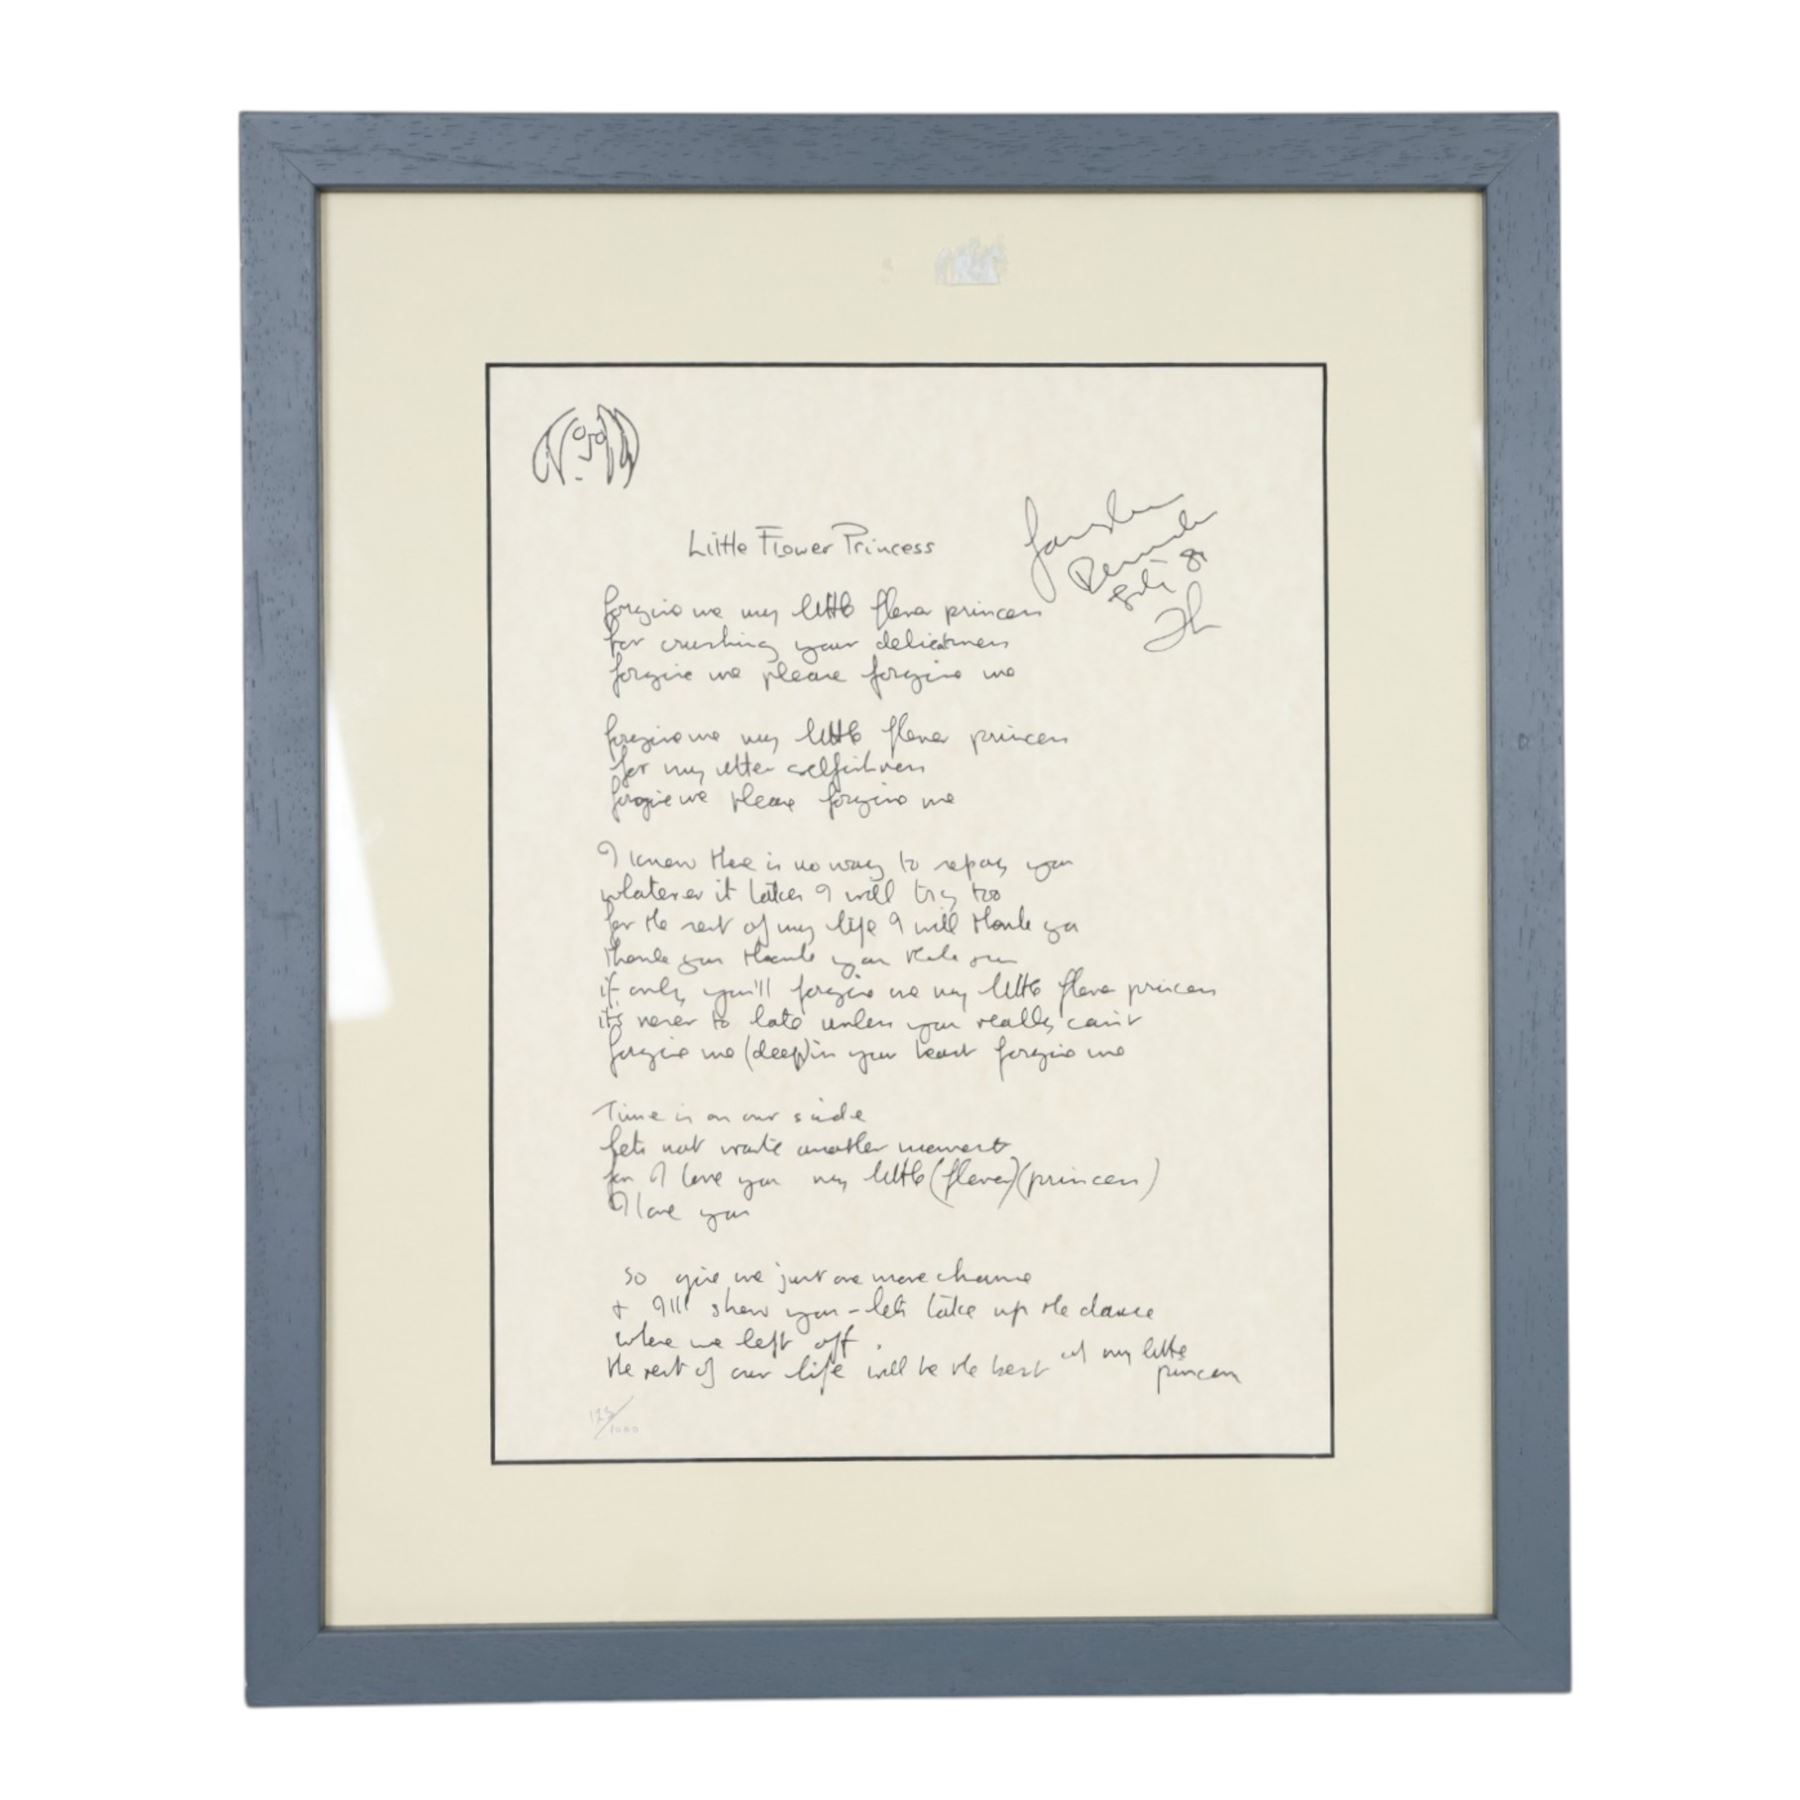 Little Flower Princess
forgive me my little flower princess
for crushing your delicateness
forgive me please forgive me
forgive me my little flower princess
for my utter selfishness
forgive me please forgive me
I know there is no way to repay you
whatever it takes I will try too
for the rest of my life I will thank you
thank you thank you thank you
if only you'll forgive me my little flower princess
it's never to late unless you really can't
forgive me (deep) in your heart forgive me
Time is on our side
lets not waste another moment
for I love you my little (flower) (princess)
I love you
so give me just one more chance
+ I'll show you - lets take up the dance
where we left off.
the rest of our life will be the best my little
princess
125/1000